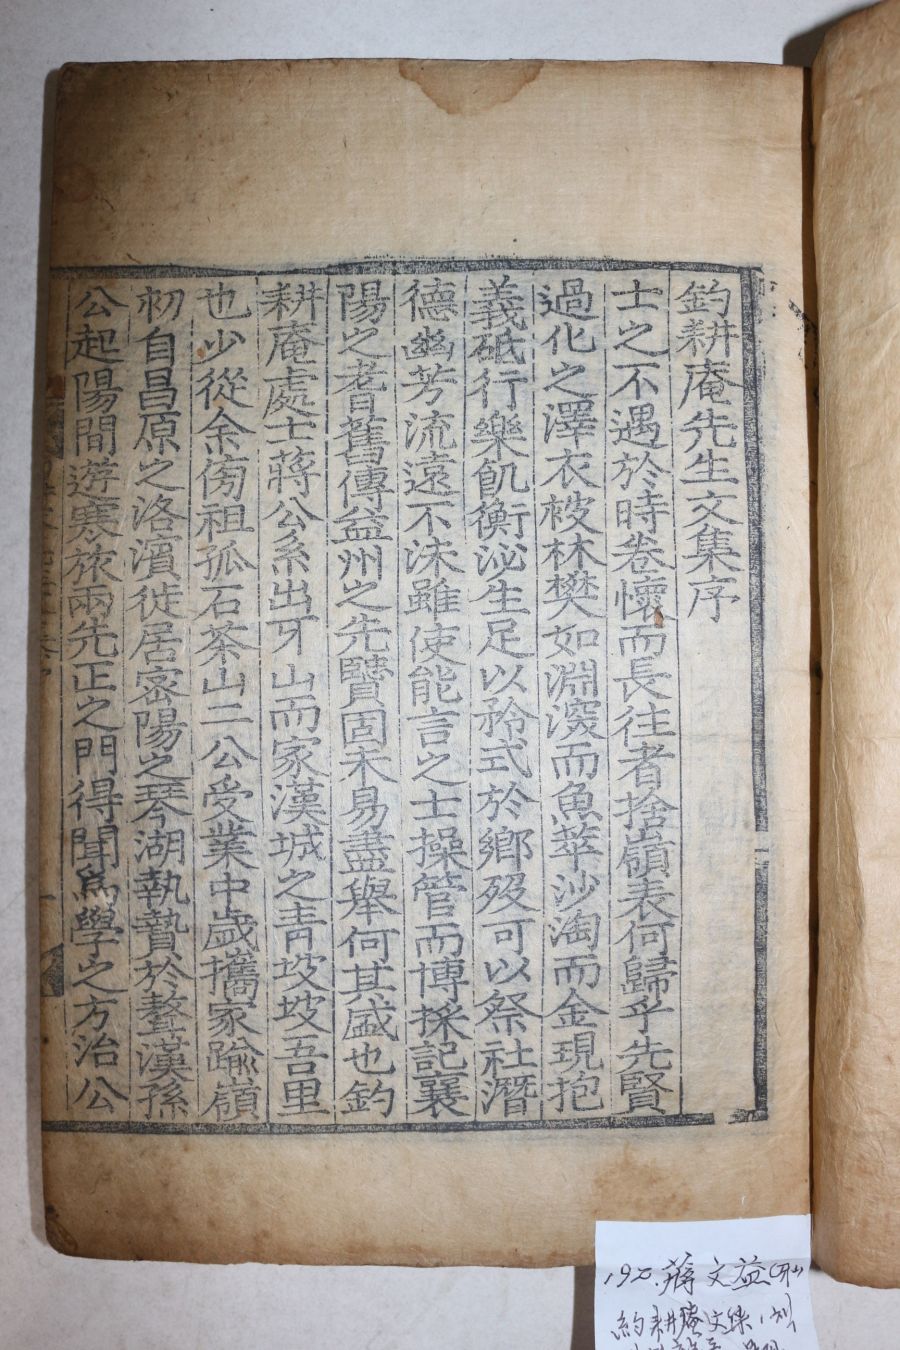 釣耕庵先生文集序
士之不遇於時卷懷而長往者捨嶺表何歸乎先賢
過化之澤衣被林樊如淵深而魚萃沙淘而金現抱
義砥行樂飢衡泌生足以矜式於鄕歿可以祭社潛
德幽芳流遠不沬雖使能言之士操管而博採記襄
陽之耆舊傳益州之先賢固未易盡擧何其盛也釣
耕庵處士蔣公系出牙山而家漢城之靑坡坡吾里
也少從余傍祖孤石茶山二公受業中歲攜家踰嶺
初自昌原之洛濱徙居密陽之琴湖執贄於鰲漢孫
公起陽間遊寒旅兩先正之門得聞爲學之方治公
192.蔣文益(牙山
釣耕庵文集,